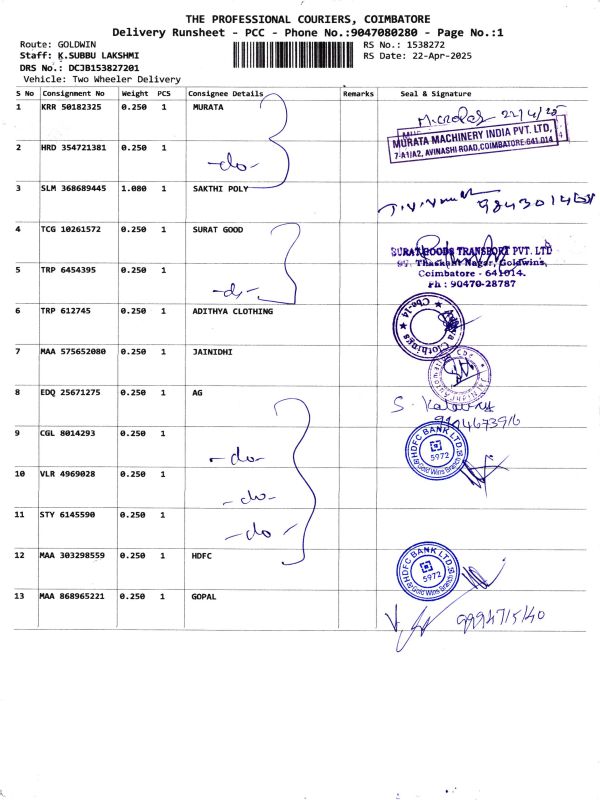 THE PROFESSIONAL COURIERS, COIMBATORE
Delivery Runsheet - PCC - Phone No.:9047080280 - Page No.:1
Route: GOLDWIN
RS No.: 1538272
Staff: K.SUBBU LAKSHMI
RS Date: 22-Apr-2025
DRS No.: DCJB153827201
Vehicle: Two Wheeler Delivery
S No Consignment No Weight PCS Consignee Details Remarks Seal & Signature
1 KRR 50182325 0.250 1 MURATA
22/4/25
MURATA MACHINERY INDIA PVT. LTD,
7-A1/A2, AVINASHI ROAD, COIMBATORE-641 014
2 HRD 354721381 0.250 1 -do-
3 SLM 368689445 1.080 1 SAKTHI POLY
4 TCG 10261572 0.250 1 SURAT GOOD
SURAT GOODS TRANSPORT PVT. LTD
Thaskant Nagar, Goldwins,
Coimbatore - 641014.
Ph : 90470-28787
5 TRP 6454395 0.250 1 -do-
6 TRP 612745 0.250 1 ADITHYA CLOTHING
Clothings Cbe-14
7 MAA 575652080 0.250 1 JAINIDHI
8 EDQ 25671275 0.250 1 AG
S.
9 CGL 8014293 0.250 1 -do-
HDFC BANK LTD.
5972
Gold Wins Branch
10 VLR 4969028 0.250 1 -do-
11 STY 6145590 0.250 1 -do-
12 MAA 303298559 0.250 1 HDFC
HDFC BANK LTD.
5972
Gold Wins Branch
13 MAA 868965221 0.250 1 GOPAL